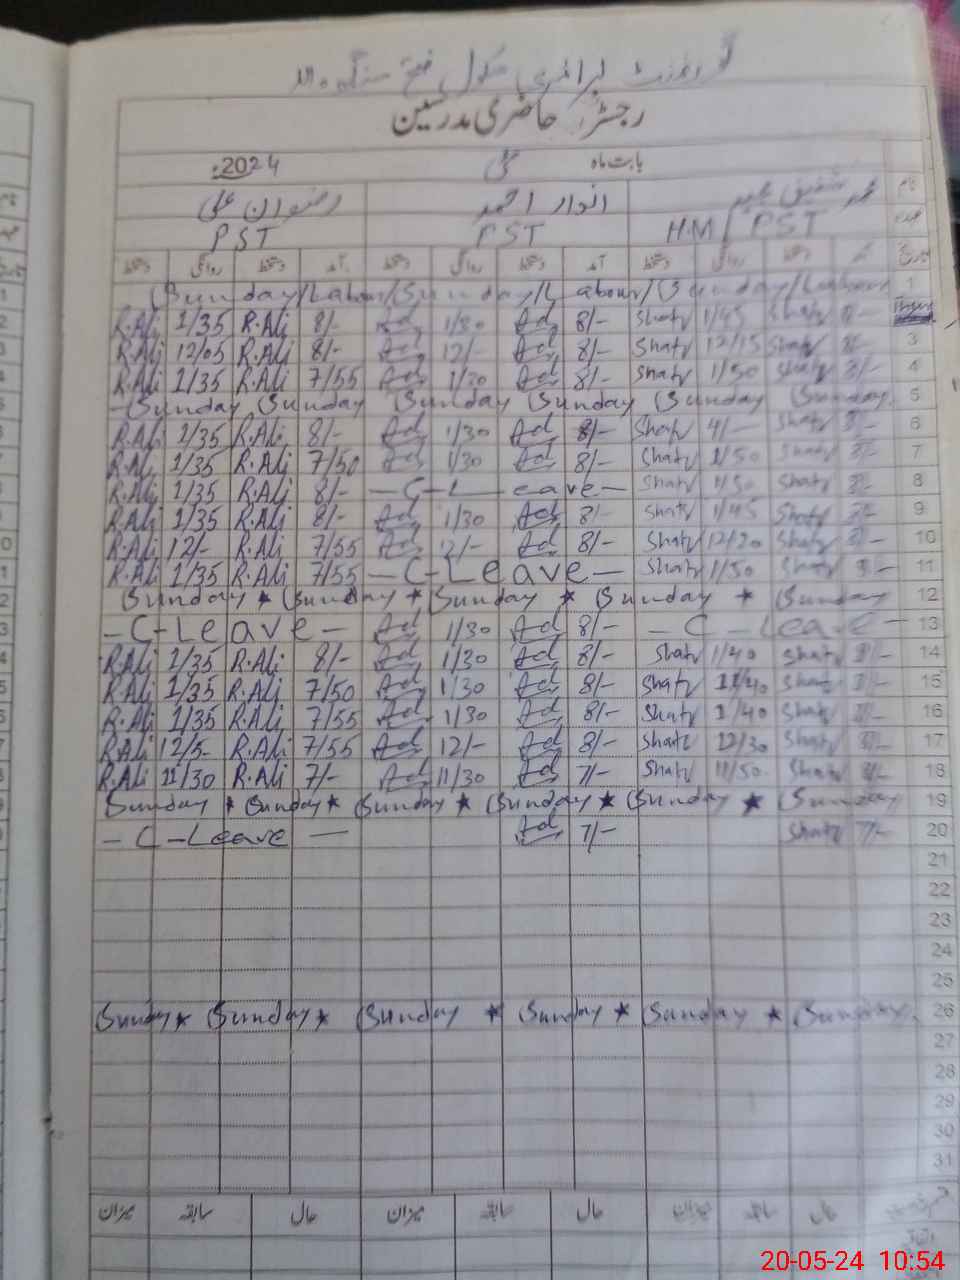 گورنمنٹ پرائمری سکول فتح سنگھ
رجسٹر حاضری مدرسین
بابت ماہ مئی 2024ء
نام محمد شفیق انوار احمد رضوان علی
عہدہ HM/PST PST PST
تاریخ آمد دستخط روانگی دستخط آمد دستخط روانگی دستخط آمد دستخط روانگی دستخط
Sunday/Labour/Sunday/Labour/Sunday/Labour 1
R.Ali 1/35 R.Ali 8/- Ad 1/30 Ad 8/- Shafq 1/45 Shafq 8/-
R.Ali 12/05 R.Ali 8/- Ad 12/- Ad 8/- Shafq 12/15 Shafq 8/- 3
R.Ali 1/35 R.Ali 7/55 Ad 1/30 Ad 8/- Shafq 1/50 Shafq 8/- 4
Sunday Sunday Sunday Sunday Sunday Sunday 5
R.Ali 1/35 R.Ali 8/- Ad 1/30 Ad 8/- Shafq 4/- Shafq 8/- 6
R.Ali 1/35 R.Ali 7/50 Ad 1/30 Ad 8/- Shafq 1/50 Shafq 8/- 7
R.Ali 1/35 R.Ali 8/- -C-Leave- Shafq 1/50 Shafq 8/- 8
R.Ali 1/35 R.Ali 8/- Ad 1/30 Ad 8/- Shafq 1/45 Shafq 8/- 9
R.Ali 12/- R.Ali 7/55 Ad 12/- Ad 8/- Shafq 12/20 Shafq 8/- 10
R.Ali 1/35 R.Ali 7/55 -C-Leave- Shafq 1/50 Shafq 8/- 11
Sunday * Sunday * Sunday * Sunday * Sunday 12
-C-Leave- Ad 1/30 Ad 8/- -C-Leave- 13
R.Ali 1/35 R.Ali 8/- Ad 1/30 Ad 8/- Shafq 1/40 Shafq 8/- 14
R.Ali 1/35 R.Ali 7/50 Ad 1/30 Ad 8/- Shafq 1/40 Shafq 8/- 15
R.Ali 1/35 R.Ali 7/55 Ad 1/30 Ad 8/- Shafq 1/40 Shafq 8/- 16
R.Ali 12/5- R.Ali 7/55 Ad 12/- Ad 8/- Shafq 12/30 Shafq 8/- 17
R.Ali 11/30 R.Ali 7/- Ad 11/30 Ad 7/- Shafq 11/50 Shafq 18
Sunday * Sunday * Sunday * Sunday * Sunday * Sunday 19
-C-Leave- Ad 7/- Shafq 7/- 20
21
22
23
24
25
Sunday * Sunday * Sunday * Sunday * Sunday * Sunday 26
27
28
29
30
31
حال سابقہ میزان حال سابقہ میزان حال سابقہ میزان
20-05-24 10:54